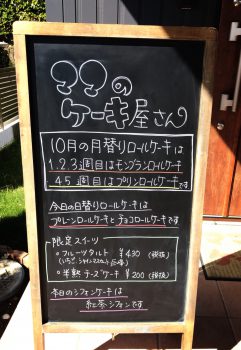 ママの
ケーキ屋さん
10月の月替りロールケーキは
1.2.3週目はモンブランロールケーキ
4.5週目はプリンロールケーキです
今日の日替りロールケーキは
プレーンロールケーキとチョコロールケーキです
限定スイーツ
・フルーツタルト ¥430 (税抜)
(いちご、シャインマスカット、巨峰)
・半熟チーズケーキ ¥200 (税抜)
本日のシフォンケーキは
紅茶シフォンです